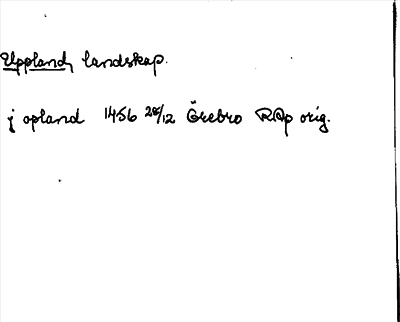 Uppland, landskap.
j opland 1456 28/12 Örebro RAp orig.